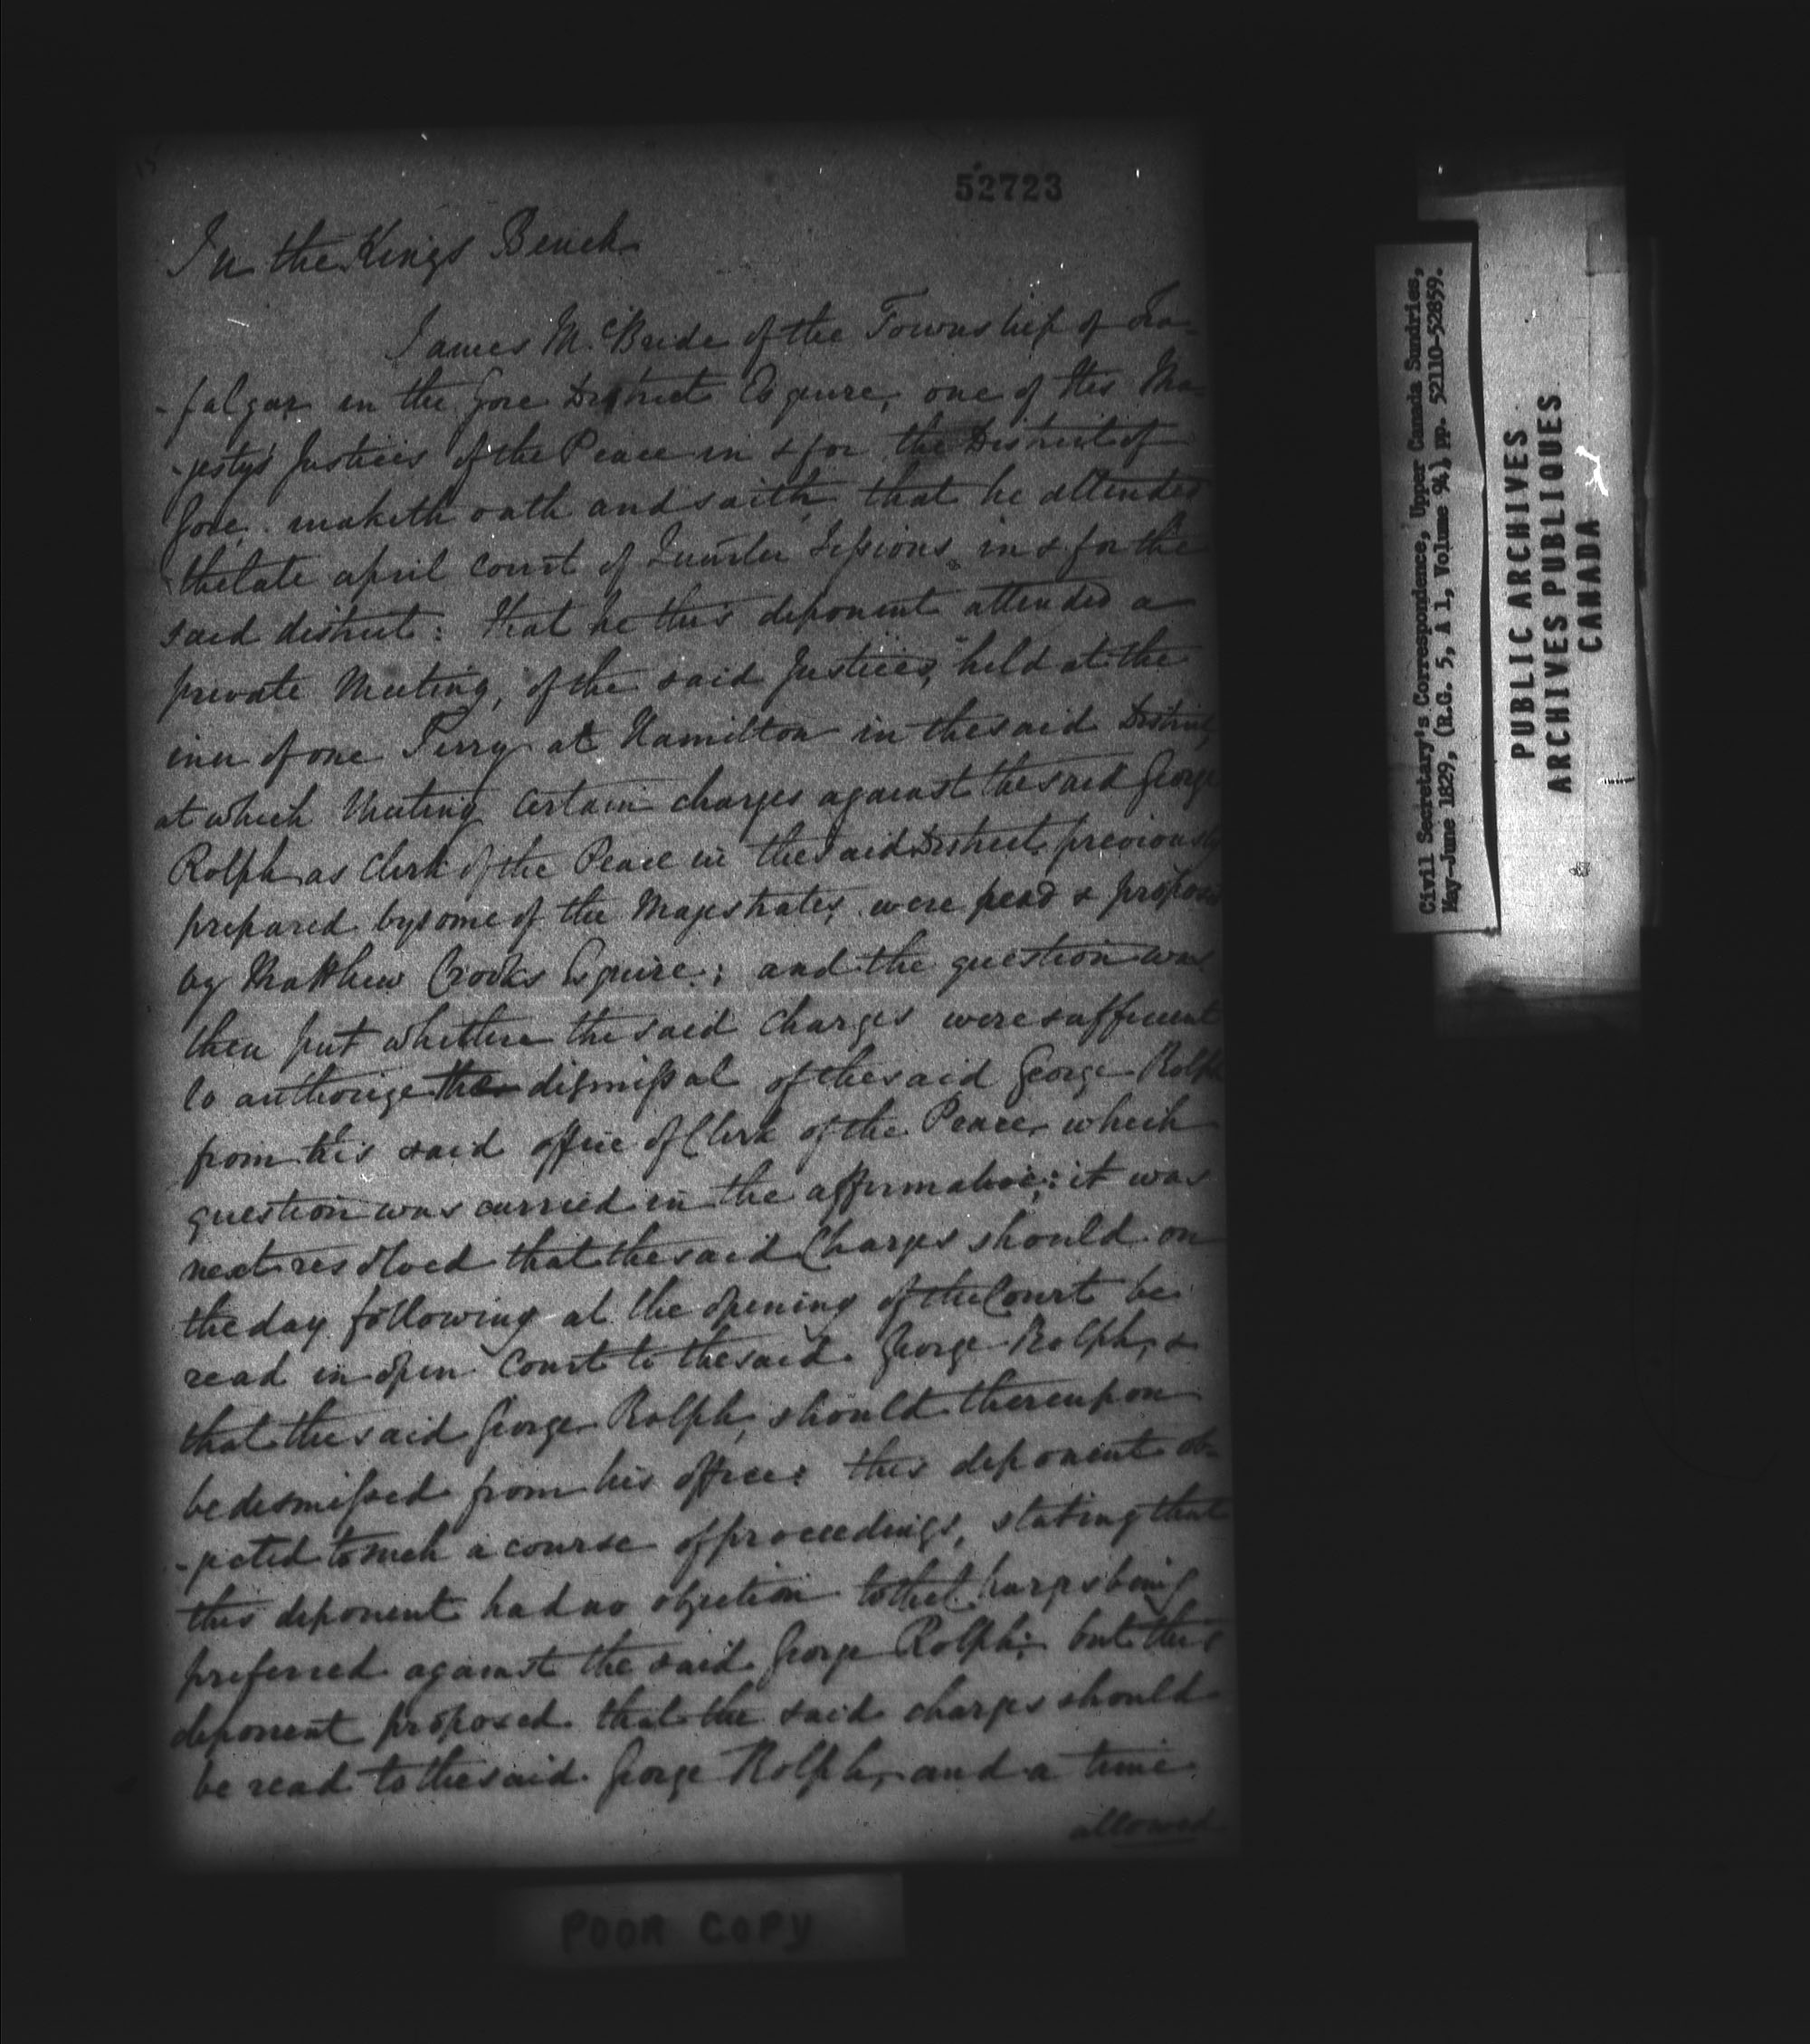 52723
In the Kings Bench
James McBride of the Township of Tra-
-falgar in the Gore District Esquire, one of His Ma-
-jesty's Justices of the Peace in & for the District of
Gore, maketh oath and saith, that he attended
the late april Court of Quarter Sessions in & for the
said district: that he this deponent attended a
private Meeting, of the said Justices, held at the
inn of one Terry at Hamilton in the said District,
at which Meeting certain charges against the said George
Rolph as Clerk of the Peace in the said District previously
prepared by some of the Magistrates, were read & proposed
by Matthew Crooks Esquire; and the question was
then put whether the said charges were sufficient
to authorize the dismissal of the said George Rolph
from his said office of Clerk of the Peace, which
question was carried in the affirmative: it was
next resolved that the said Charges should on
the day following at the opening of the Court be
read in open Court to the said George Rolph, &
that the said George Rolph, should thereupon
be dismissed from his office: this deponent ob-
-jected to such a course of proceedings, stating that
this deponent had no objection to the Charges being
preferred against the said George Rolph; but this
deponent proposed that the said charges should
be read to the said George Rolph, and a time
allowed
POOR COPY
Civil Secretary's Correspondence, Upper Canada Sundries,
May-June 1829, (R.G. 5, A 1, Volume 94) pp. 52110-52859.
PUBLIC ARCHIVES
ARCHIVES PUBLIQUES
CANADA